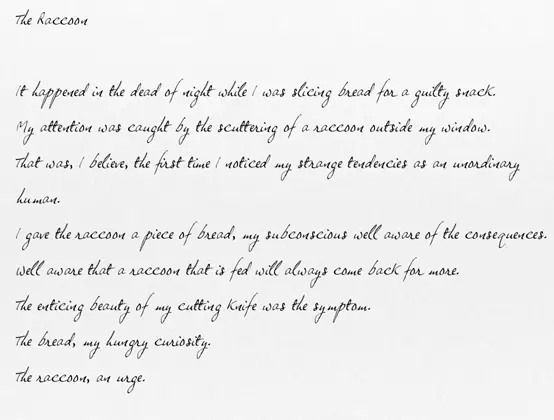 The Raccoon
It happened in the dead of night while I was slicing bread for a guilty snack.
My attention was caught by the scuttering of a raccoon outside my window.
That was, I believe, the first time I noticed my strange tendencies as an unordinary
human.
I gave the raccoon a piece of bread, my subconscious well aware of the consequences.
Well aware that a raccoon that is fed will always come back for more.
The enticing beauty of my cutting knife was the symptom.
The bread, my hungry curiosity.
The raccoon, an urge.